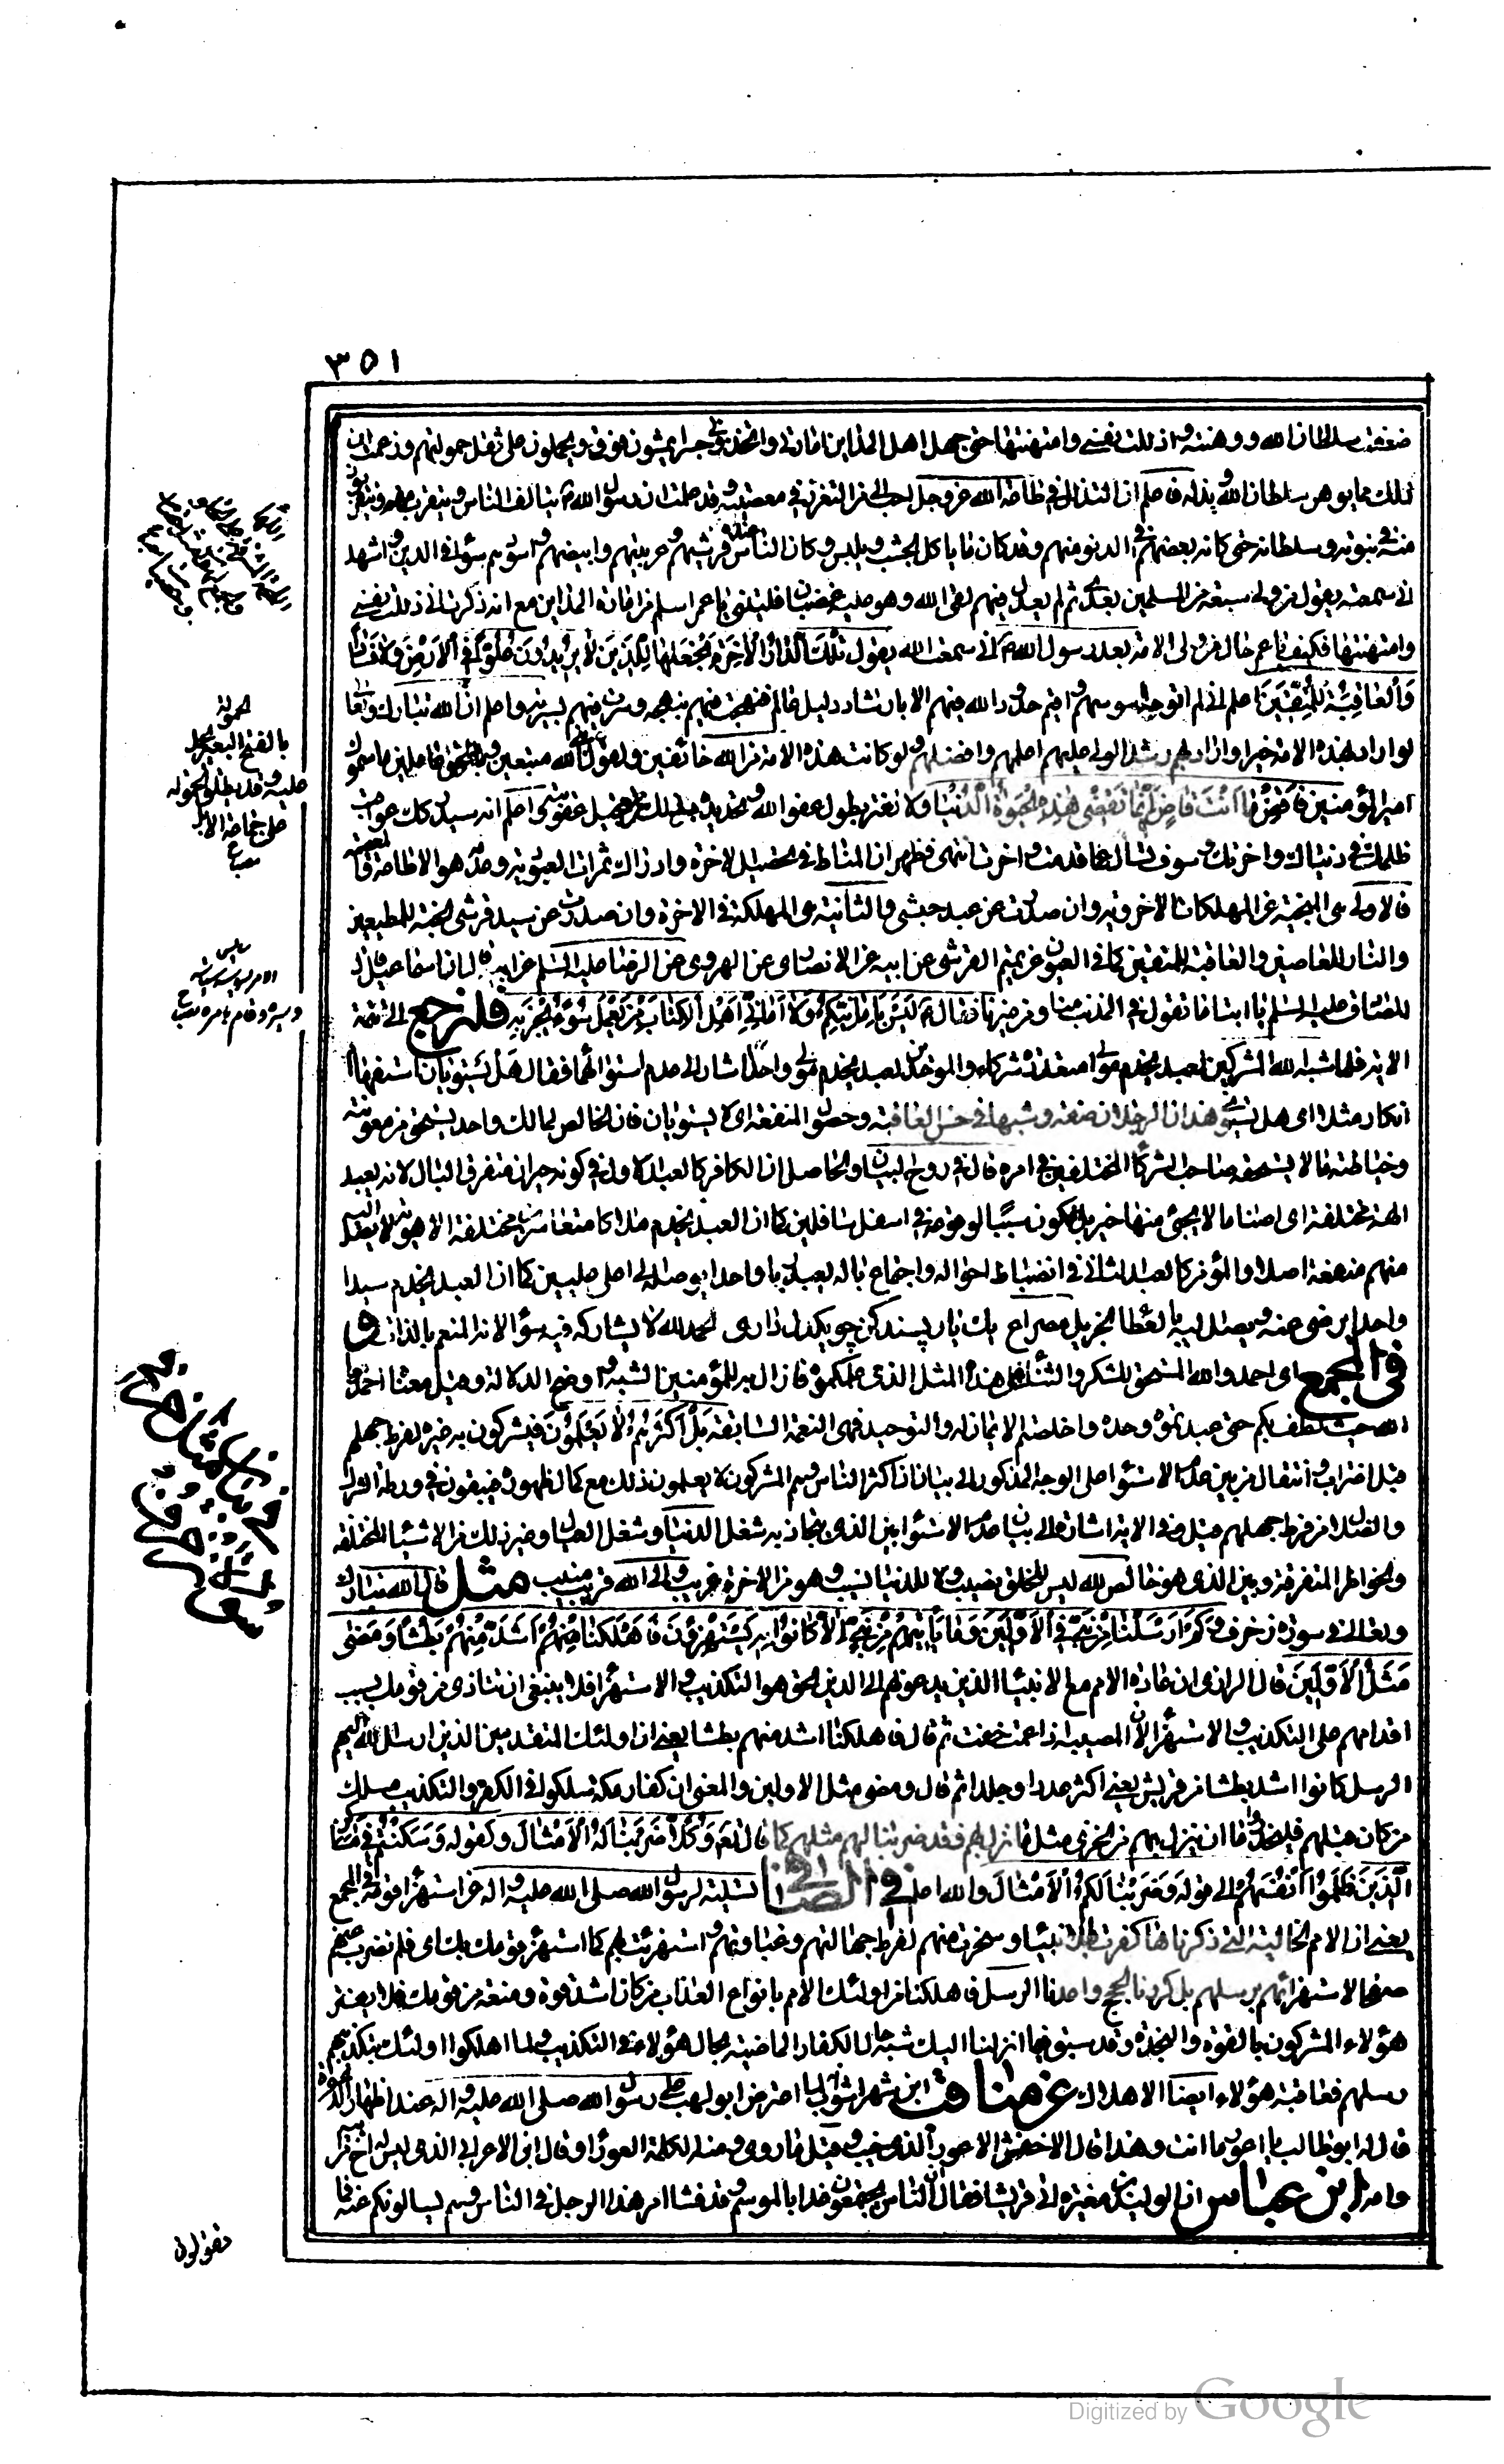 ٣٥١
ضعفت سلطان الله ووهنته واذللت نفسي وامتهنتها حتى جهل اهل المداين امارتي واتخذوني جسرا يمشون فوقي ويحملون على ثقل حمولتهم وزعمت ان
ذلك مما يوهن سلطان الله ويذله فاعلم ان التذلل في طاعة الله عز وجل احب الي من التعزز في معصيته وقد علمت ان رسول الله ص يتالف الناس ويتقرب منهم ويتقربون
منه في نبوته وسلطانه حتى كانه بعضهم في الدنو منهم وقد كان ياكل الجشب ويلبس وكان الناس عنده قرشيهم وعربيهم وابيضهم واسودهم سواء في الدين واشهد
اني سمعته يقول من ولي سبعة من المسلمين بعدي ثم لم يعدل فيهم لقي الله وهو عليه غضبان فليتني يا عمر اسلم من امارة المداين مع انه ذكرت اني ذللت نفسي
وامتهنتها فكيف يا عمر حال من ولي الامة بعد رسول الله ص اني سمعت الله يقول تِلْكَ الدَّارُ الْآخِرَةُ نَجْعَلُهَا لِلَّذِينَ لَا يُرِيدُونَ عُلُوًّا فِي الْأَرْضِ وَلَا فَسَادًا
وَالْعَاقِبَةُ لِلْمُتَّقِينَ اعلم اني لم اتوجه اسوسهم واقيم حدود الله فيهم الا بارشاد دليل عالم فنهجت فيهم بنهجه وسرت فيهم بسيرته واعلم ان الله تبارك وتعالى
لو اراد بهذه الامة خيرا واراد بهم رشدا لولى عليهم اعلمهم وافضلهم ولو كانت هذه الامة من الله خائفين ولقول نبي الله متبعين وبالحق عاملين ما سموك
امير المؤمنين فَاقْضِ مَا أَنْتَ قَاضٍ إِنَّمَا تَقْضِي هَذِهِ الْحَيَاةَ الدُّنْيَا ولا تغتر بطول عفو الله وتمديده لك من تعجيل عقوبته اعلم انه سيدركك عواقب
ظلمك في دنياك واخرتك وسوف تسال عما قدمت واخرت انتهى فظهر ان المناط في تحصيل الاخرة وادراك ثمرات العبودية وعدمه هو الاطاعة والمعصية
فالاولى هي المنجية عن المهلكات الاخروية وان صدرت عن عبد حبشي والثانية هي المهلكة في الاخرة وان صدرت عن سيد قرشي الجنة للمطيعين
والنار للعاصين والعاقبة للمتقين كما في العيون عن تميم القرشي عن ابيه عن الانصاري عن الهروي عن الرضا عليه السلم عن ابيه قال ان اسماعيل قال
للصادق عليه السلم يا ابتاه ما تقول في المذنب منا ومن غيرنا فقال ع لَيْسَ بِأَمَانِيِّكُمْ وَلَا أَمَانِيِّ أَهْلِ الْكِتَابِ مَنْ يَعْمَلْ سُوءًا يُجْزَ بِهِ فلنرجع الى تتمة
الاية فلما شبه الله المشركين بعبد يخدم موالي متعددة شركاء والموحد بعبد يخدم مولى واحدا اشار الى عدم استوائهما فقال هَلْ يَسْتَوِيَانِ استفهاما
انكار مثلا اي هل يستوي هذان الرجلان صفة وشبها في حسن العاقبة وحصول المنفعة اي لا يستويان فان الخالص لمالك واحد يستحق من معونته
وحياطته ما لا يستحقه صاحب الشركاء المختلفين في امره قال في روح البيان والحاصل ان الكافر كالعبد الاول في كونه حيران متفرق البال لانه يعبد
الهة مختلفة اي اصناما لا يجيء منها خير بل تكون سببا لوقوعه في اسفل سافلين كما ان العبد يخدم ملاكا متعاسرين مختلفة الاهوية لا يصل اليه
منهم منفعة اصلا والمؤمن كالعبد الثاني في انضباط احواله واجتماع باله يعبد ربا واحدا يوصله الى اعلى عليين كما ان العبد يخدم سيدا
واحدا يرضى عنه ويصل اليه بالعطاء الجزيل مصراع يك يار پسند كن چو يكدل داري الحمد لله لا يشاركه فيه سواه لانه المنعم بالذات و
في المجمع اي احمدوا الله المستحق للشكر والثناء على هذا المثل الذي علمكموه فازال به للمؤمنين الشبه واوضح الدلالة وقيل معناه احمدوا
الله حيث لطف بكم حتى عبدتموه وحده واخلصتم الايمان له والتوحيد فهي النعمة السابقة بَلْ أَكْثَرُهُمْ لَا يَعْلَمُونَ فيشركون به غيره لفرط جهلهم
قيل اضراب وانتقال من بين عدم الاستواء على الوجه المذكور الى بيان ان اكثر الناس وهم المشركون لا يعلمون ذلك مع كمال ظهوره فيبقون في ورطة الشرك
والضلال من فرط جهلهم قيل وفي الاية اشارة الى بيان عدم الاستواء بين الذي يتجاذبه شغل الدنيا وشغل العيال وغير ذلك من الاشياء المختلفة
والخواطر المتفرقة وبين الذي هو خالص لله ليس للخلق فيه نصيب ولا للدنيا نسيب وهو من الاخرة غريب والى الله قريب منيب مثل قال الله تبارك
وتعالى في سورة زخرف وَكَمْ أَرْسَلْنَا مِنْ نَبِيٍّ فِي الْأَوَّلِينَ وَمَا يَأْتِيهِمْ مِنْ نَبِيٍّ إِلَّا كَانُوا بِهِ يَسْتَهْزِءُونَ فَأَهْلَكْنَا أَشَدَّ مِنْهُمْ بَطْشًا وَمَضَى
مَثَلُ الْأَوَّلِينَ قال الرازي ان عادة الامم مع الانبياء الذين يدعونهم الى الدين الحق هو التكذيب والاستهزاء فلا ينبغي ان تتاذى من قومك بسبب
اقدامهم على التكذيب والاستهزاء لان المصيبة اذا عمت خفت ثم قال فاهلكنا اشد منهم بطشا يعني ان اولئك المتقدمين الذين ارسل الله اليهم
الرسل كانوا اشد بطشا من قريش يعني اكثر عددا وجلدا ثم قال ومضى مثل الاولين والمعنى ان كفار مكة سلكوا في الكفر والتكذيب مسلك
من كان قبلهم فليحذروا ان ينزل بهم من الخزي مثل ما نزل بهم فقد ضربنا لهم مثلهم كما قال تع وَكُلًّا ضَرَبْنَا لَهُ الْأَمْثَالَ وكقوله وَسَكَنْتُمْ فِي مَسَاكِنِ
الَّذِينَ ظَلَمُوا أَنْفُسَهُمْ الى قوله وَضَرَبْنَا لَكُمُ الْأَمْثَالَ والله اعلم في الصافي تسلية لرسول الله صلى الله عليه واله عن استهزاء قومه في المجمع
يعني ان الامم الخالية التي ذكرناها كفرت بالانبياء وسخرت منهم لفرط جهالتهم وغباوتهم واستهزءت بهم كما استهزء قومك بك اي فلم نضرب عنهم
صفحا لاستهزائهم برسلهم بل كررنا الحجج واعدنا الرسل فاهلكنا من اولئك الامم بانواع العذاب من كان اشد قوة ومنعة من قومك فلا يغتر
هؤلاء المشركون بالقوة والنجدة وقد سبق فيما انزلنا اليك شبه حال الكفار الماضية بحال هؤلاء في التكذيب ولما اهلكوا اولئك بتكذيبهم
رسلهم فعاقبة هؤلاء ايضا الاهلاك عن مناقب ابن شهراشوب اعترض ابو لهب على رسول الله صلى الله عليه واله عند اظهار الدعوة
قال له ابو طالب يا اعور ما انت وهذا قال الاخفش الاعور الذي خيب وقيل يا ردي ومنه الكلمة العوراء وقال ابن الاعرابي الذي ليس له اخ من ابيه
وامه ابن عباس ان الوليد بن مغيرة اتى قريشا فقال ان الناس يجتمعون غدا بالموسم وقد فشا امر هذا الرجل في الناس وهم يسالونكم عنه فما
الحمولة
بالفتح البعير يحمل
عليه وقد يطلق الحمولة
على جماعة الابل
مصباح
ساس
فتقولون
Digitized by Google